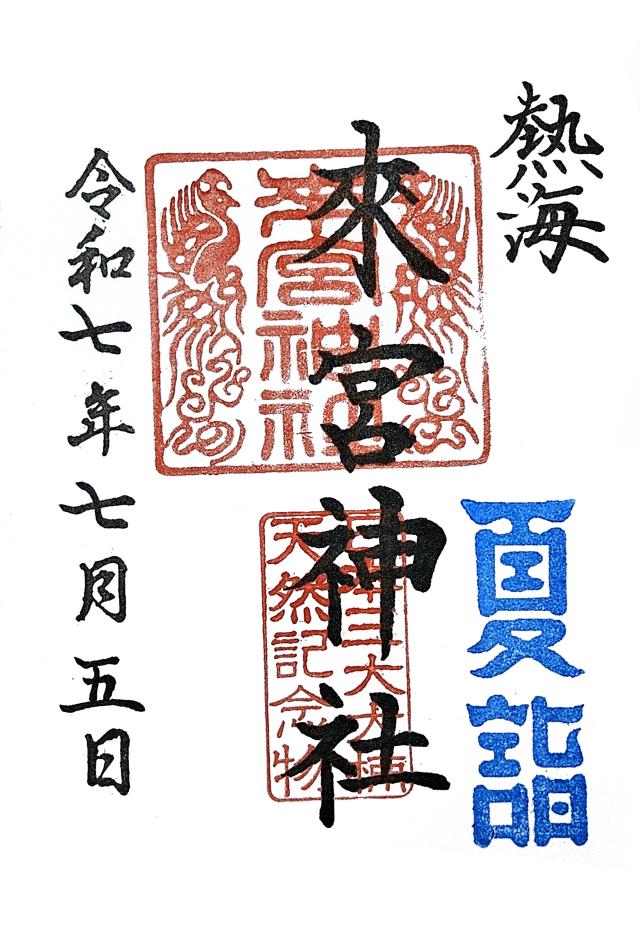 熱海
夏詣
來宮神社
來宮神社
日本三大大楠
天然記念物
令和七年七月五日